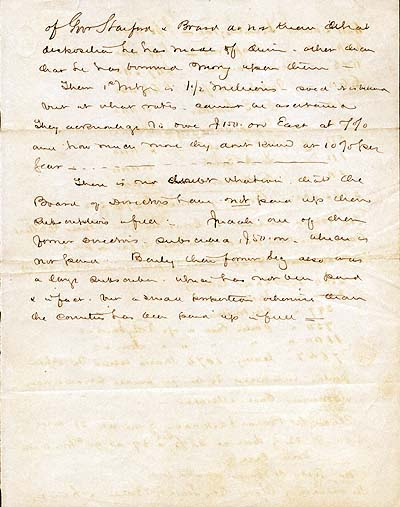 of Gov Stanford & Board do not know what
disposition he has made of them - other than
that he has borrowed money upon them -
Their 1st Mtge is 1 1/2 millions -
but at what rates - cannot be ascertained
They acknowledge to owe $150. on East at 7%
and how much more they don't know at 10% per
Year -
There is no doubt whatever that the
Board of Directors have not paid up their
subscriptions in full - Judah one of their
former Directors - subscribed $50.00 - which is
not paid. Bailey their former Secy also was
a large subscriber which has not been paid
& in fact but a small proportion otherwise than
the Counties has been paid up in full -